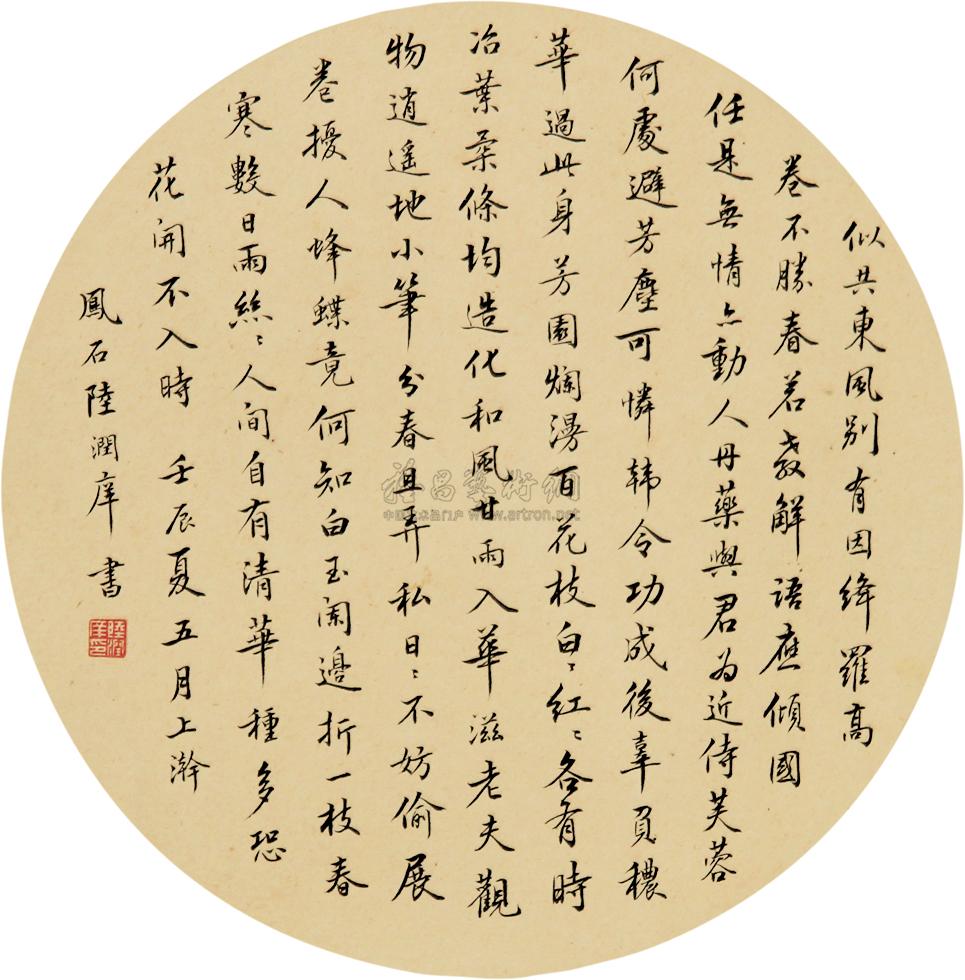 似共東風別有因絳羅高
卷不勝春若教解語應傾國
任是無情亦動人丹藥與君為近侍芙蓉
何處避芳塵可憐韓令功成後辜負穠
華過此身芳園爛漫百花枝白〻紅〻各有時
冶葉柔條均造化和風甘雨入華滋老夫觀
物逍遙地小筆分春且弄私日〻不妨偷展
卷擾人蜂蝶竟何知白玉闌邊折一枝春
寒數日雨絲〻人間自有清華種多恐
花開不入時 壬辰夏五月上澣
鳳石陸潤庠書
陸潤庠印
雅昌藝術網
中国艺术品门户 www.artron.net